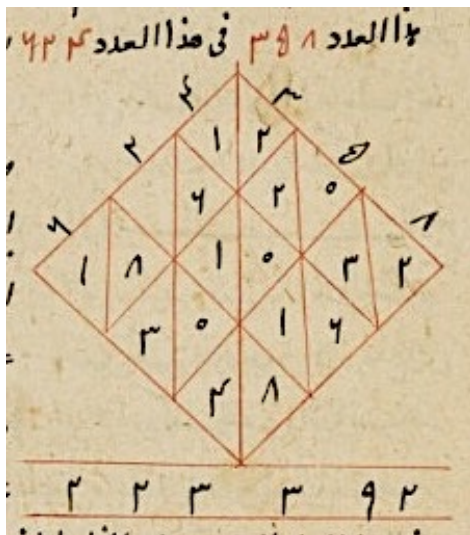 هذا العدد ٣٥٨ فى هذا العدد ٦٢٤
٤ ٣
١ ٢
٢ ٥
٦ ٢ ٠
٦ ٨
١ ٨ ١ ٠ ٣ ٢
٣ ٠ ١ ٦
٤ ٨
٢ ٢ ٣ ٣ ٩ ٢